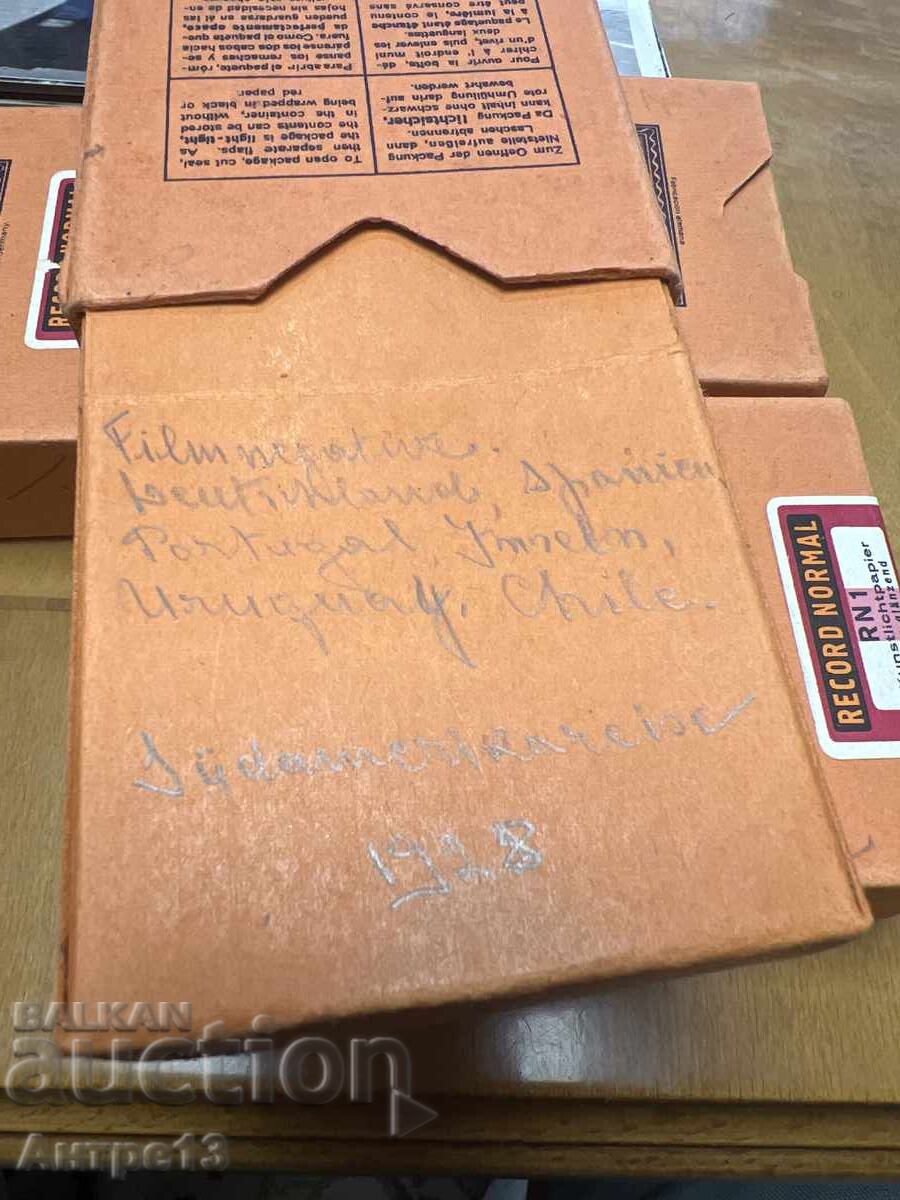 Para abrir el paquete, róm-
panse los remaches y se-
párense los dos cabos hacia
fuera. Como el paquete que-
da perfectamente opaco,
pueden guardarse en él las
hojas sin necesidad de en-
Pour ouvrir la boîte, dé-
chirer à l' endroit muni
d'un rivet, puis enlever les
deux languettes.
Le paquetage étant étanche
à la lumière, le contenu
peut être conservé sans
To open package, cut seal,
then separate flaps. As
the package is light-tight,
the contents can be stored
in the container, without
being wrapped in black or
red paper.
Zum Oeffnen der Packung
Nietstelle aufreißen, dann
Laschen abtrennen.
Da Packung lichtsicher,
kann Inhalt ohne schwarz-
rote Umhüllung darin auf-
bewahrt werden.
Filmnegative.
Deutschland, Spanien
Portugal Inseln,
Uruguay, Chile.
Südamerikareise
1928
RECORD NORMAL
RECORD NORMAL
RN1
Kunstlichtpapier
glänzend
Germany
Fabricación alemana
BALKAN
auction
Антре13